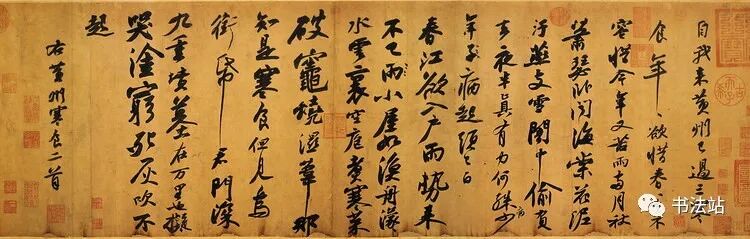 自我來黃州已過三寒
食年、欲惜春、去不
容惜今年又苦雨兩月秋
蕭瑟臥聞海棠花泥
汙燕支雪闇中偷負
去夜半真有力何殊少
年子病起頭已白
春江欲入戶雨勢來
不已雨小屋如漁舟濛、
水雲裏空庖煮寒菜
破竈燒濕葦那
知是寒食但見烏
銜帋君門深
九重墳墓在万里也擬
哭塗窮死灰吹不
起
右黃州寒食二首
书法站